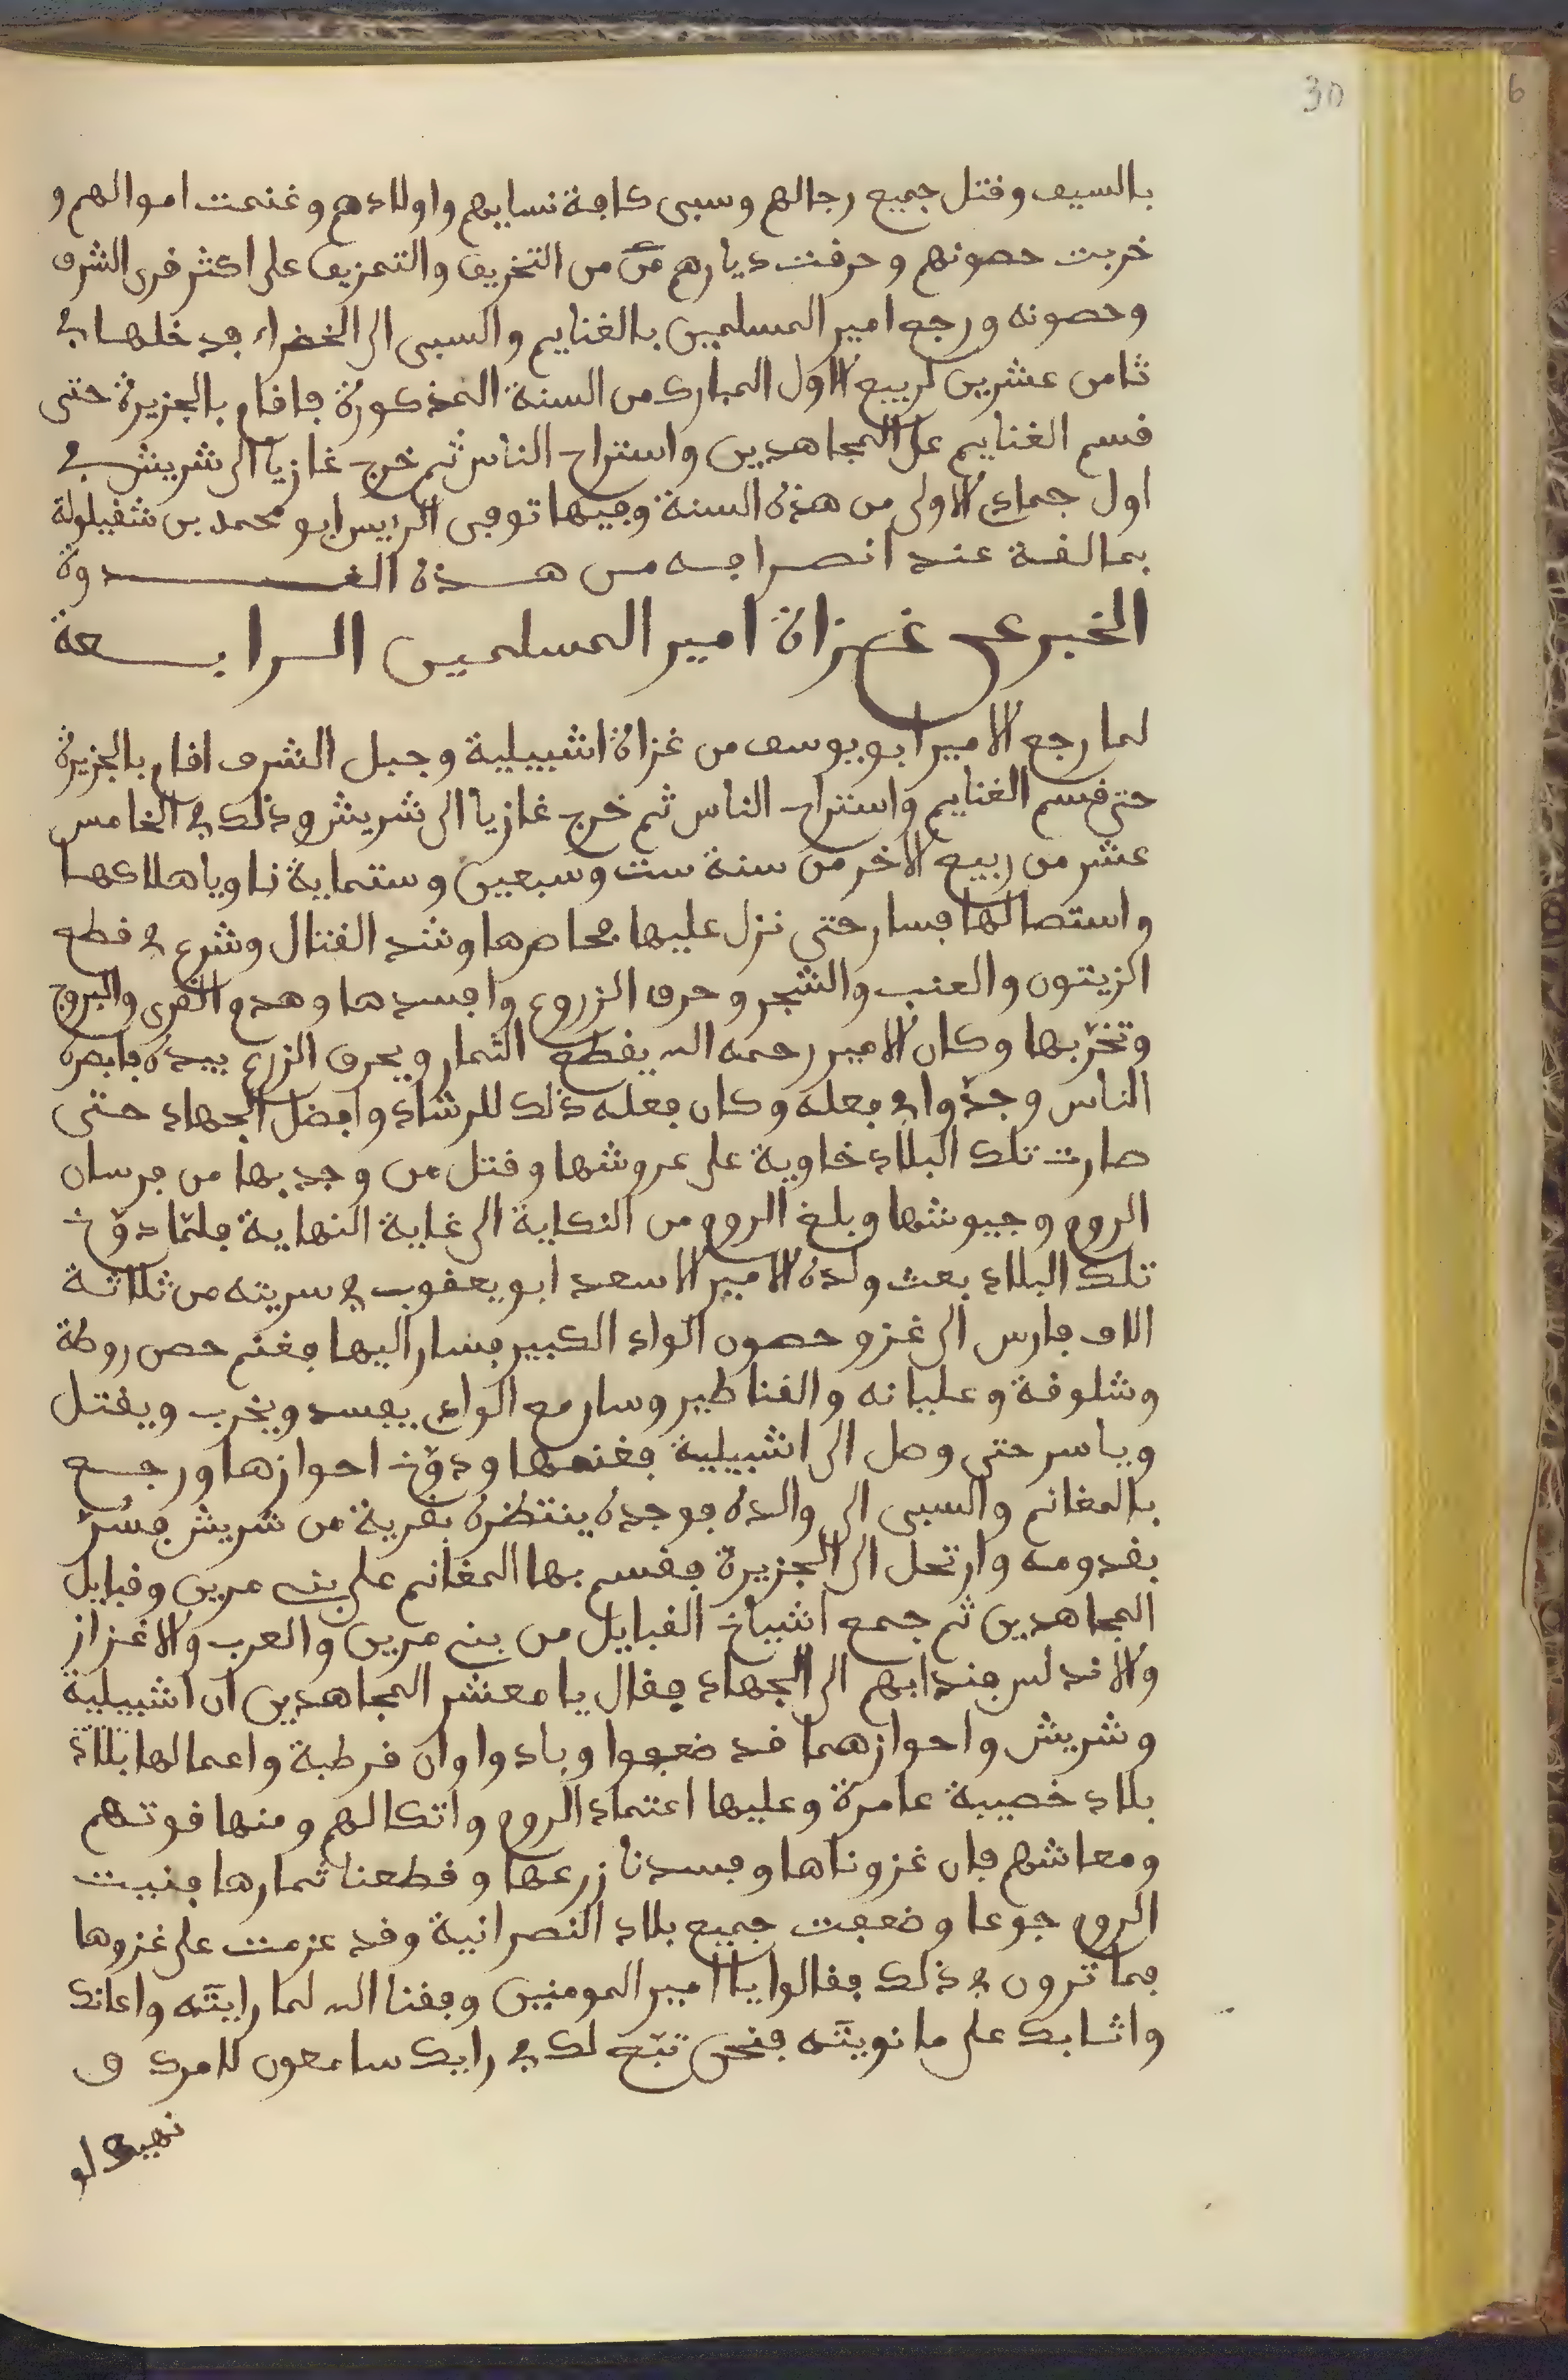 30
6
بالسيف وقتل جميع رجالهم وسبى كافة نسايهم واولادهم وغنمت اموالهم و
خربت حصونهم وحرقت ديارهم من التخريف والتمزيق على اكثر قرى الشرف
وحصونه ورجع امير المسلمين بالغنايم والسبى الى الخضراء فدخلها في
ثامن عشرين لربيع الاول المبارك من السنة المذكورة فاقام بالجزيرة حتى
قسم الغنايم على المجاهدين واستراح الناس ثم خرج غازيا الى شريش في
اول جمادى الاولى من هذه السنة وفيها توفي الرييس ابو محمد بن شقيلولة
بمالقة عند انصرافه من هذه الغدوة
الخبر عن غزاة امير المسلمين الرابعة
لما رجع الامير ابو يوسف من غزاة اشبيلية وجبل الشرف اقام بالجزيرة
حتى قسم الغنايم واستراح الناس ثم خرج غازيا الى شريش وذلك في الخامس
عشر من ربيع الاخر من سنة ست وسبعين وستماية ناويا هلاكها
واستصالها فسار حتى نزل عليها محاصرها وشد القتال وشرع في قطع
الزيتون والعنب والشجر وحرق الزروع وافسدها وهدم القرى والبروج
وتخربها وكان الامير رحمه الله يقطع الثمار ويحرق الزرع بيده فابصره
الناس وجدّوا في فعله وكان فعله ذلك للرشاد وافضل الجهاد حتى
صارت تلك البلاد خاوية على عروشها وقتل من وجد بها من فرسان
الروم وجيوشها وبلغ الروم من النكاية الى غاية النهاية فلمّا دوّخ
تلك البلاد بعث ولده الامير الاسعد ابو يعقوب في سريته من ثلاثة
الاف فارس الى غزو حصون الواد الكبير فسار اليها فغنم حصن روطة
وشلوقة وعليانه والقناطير وسار مع الوادي يفسد ويخرب ويقتل
وياسر حتى وصل الى اشبيلية فغنمها ودوّخ احوازها ورجع
بالمغانم والسبى الى والده فوجده ينتظره بقرية من شريش فسُرّ
بقدومه وارتحل الى الجزيرة فقسم بها المغانم على بني مرين وقبايل
المجاهدين ثم جمع اشياخ القبايل من بني مرين والعرب والاغزاز
والاندلس فندابهم الى الجهاد فقال يا معشر المجاهدين ان اشبيلية
وشريش واحوازهما قد ضعفوا وبادوا وان قرطبة واعمالها بلاد
بلاد خصيبة عامرة وعليها اعتماد الروم واتكالهم ومنها قوتهم
ومعاشهم فان غزوناها وفسدنا زرعها وقطعنا ثمارها فنيت
الروم جوعا وضعفت جميع بلاد النصرانية وقد عزمت على غزوها
فما ترون في ذلك فقالوا يا امير المومنين وفقنا الله لما رايته واعانك
واثابك على ما نويته فنحن تبّع لك في رايك سامعون لامرك و